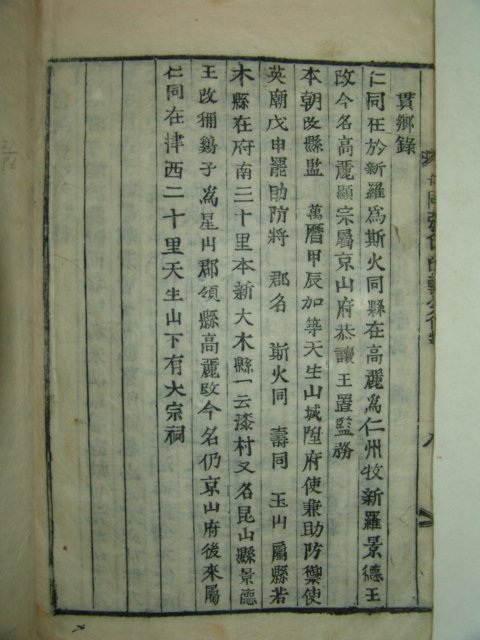 貫鄉錄
仁同在於新羅爲斯火同縣在高麗爲仁州牧新羅景德王
改今名高麗顯宗屬京山府恭讓王置監務
本朝改縣監 萬曆甲辰加等天生山城陞府使兼助防禦使
英廟戊申罷助防將 郡名 斯火同 壽同 玉山 屬縣若
木縣在府南三十里本新大木縣一云漆村又名昆山縣景德
王改稱谿子爲星山郡領縣高麗改今名仍京山府後來屬
仁同在津西二十里天生山下有大宗祠